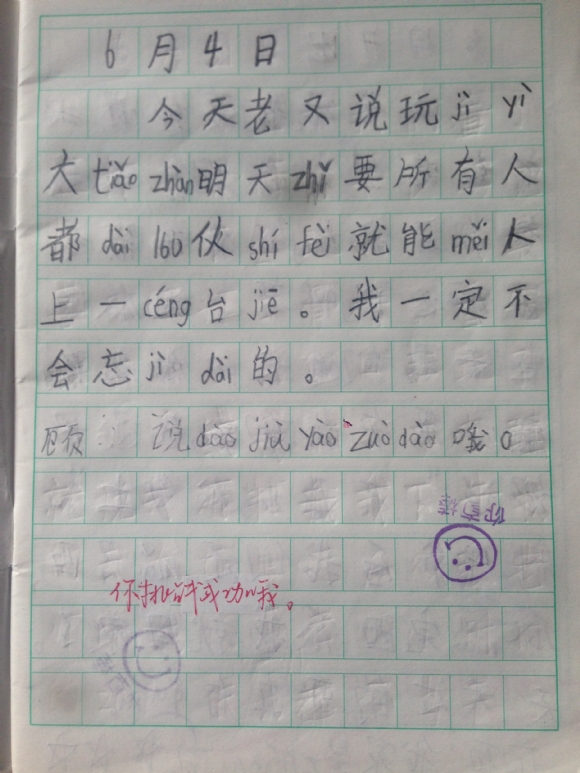 6月4日
今天老又说玩jì yì
大tiǎo zhàn明天zhǐ要所有人
都dài 160伙shí fèi就能měi人
上一céng台jiē。我一定不
会忘jì dài的。
说dào jiù yào zuò dào哦。
你真棒
你挑战成功哦。